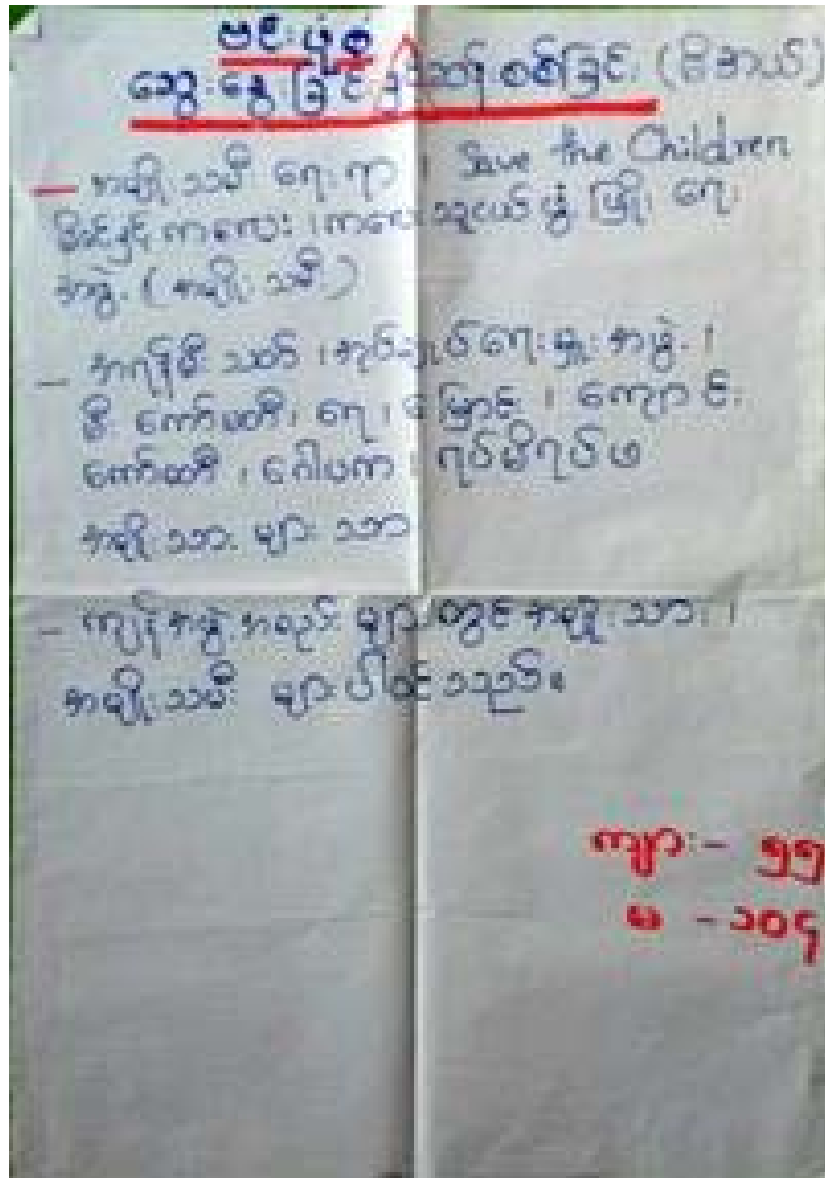 ဗင်းပုံစံ
ဆွေးနွေးခြင်း ဆန်းစစ်ခြင်း (မိအယ်)
— အမျိုးသမီးရေးရာ ၊ Save the Children
မိခင်နှင့်ကလေး ၊ ကလေးသူငယ်ဖွံ့ဖြိုးရေး
အဖွဲ့ (အမျိုးသမီး)
— အရန်မီးသတ် ၊ အုပ်ချုပ်ရေးမှူးအဖွဲ့ ၊
မီးကော်မတီ ၊ ရေ ၊ မြောင်း ၊ ကျောင်း
ကော်မတီ ၊ ဂေါပက ၊ ရပ်မိရပ်ဖ
အမျိုးသားများသာ
— ကျန်အဖွဲ့အစည်းများတွင် အမျိုးသား ၊
အမျိုးသမီးများပါဝင်သည်။
ကျား - ၅၅
မ - ၁၀၄